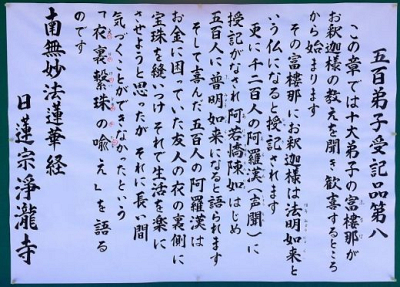 五百弟子受記品第八
この章では十大弟子の富樓那が
お釈迦様の教えを聞き歓喜するところ
から始まります
その富樓那にお釈迦様は法明如来と
いう仏になると授記されます
更に千二百人の阿羅漢(声聞)に
授記がなされ阿若憍陳如はじめ
五百人に普明如来になると語られます
そして喜んだ五百人の阿羅漢は
お金に困っていた友人の衣の裏側に
宝珠を縫いつけそれで生活を楽に
させようと思ったがそれに長い間
気づくことができなかったという
「衣裏繋珠の喩え」を語る
のです
南無妙法蓮華経
日蓮宗淨瀧寺